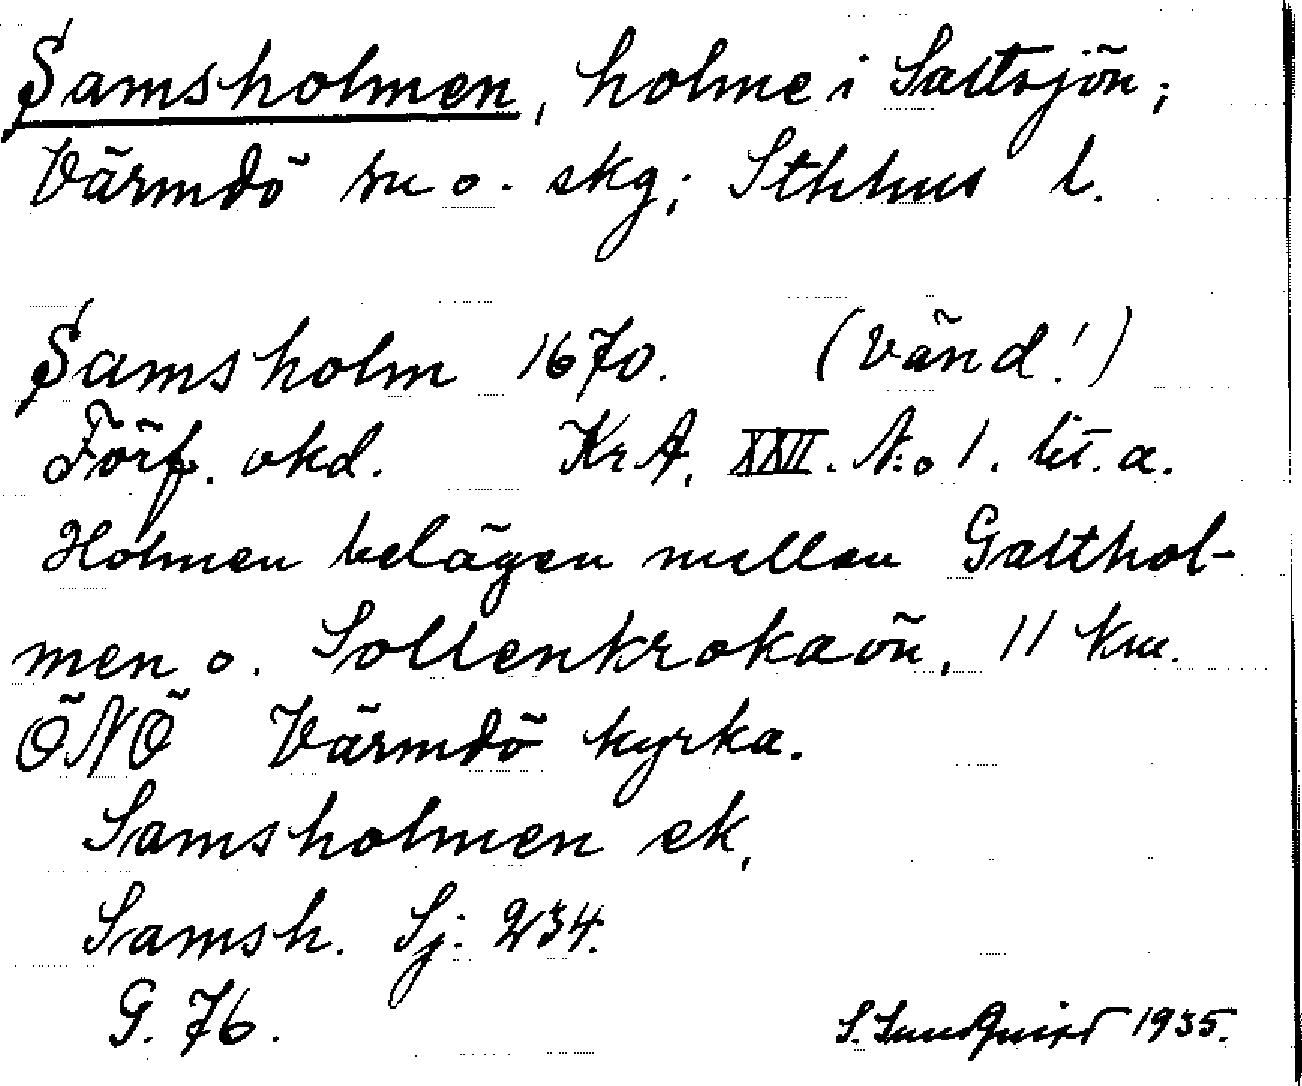 Samsholmen, holme i Saltsjön;
Värmdö sn o. skg; Sthlms l.
Samsholm 1670. (vänd!)
Förf. okd. KrA, XXII. N:o 1. lit. a.
Holmen belägen mellan Galthol-
men o. Sollenkrokaön, 11 km.
ÖNÖ Värmdö kyrka.
Samsholmen ek,
Samsh. Sj. 234.
G. 76. S. Sundquist 1935.